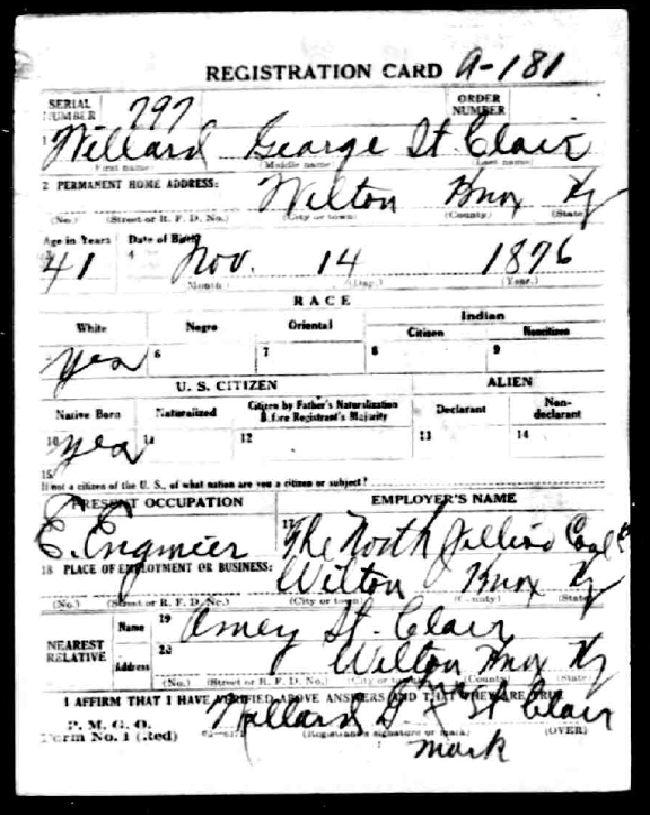 REGISTRATION CARD A-181
SERIAL NUMBER 797 ORDER NUMBER
1 Willard George St. Clair
First name (Middle name) (Last name)
2 PERMANENT HOME ADDRESS: Wilton Knox Ky
(No.) (Street or R. F. D. No.) (City or town) (County) (State)
Age in Years Date of Birth
41 4 Nov. 14 1876
(Month) (Day.) (Year.)
RACE
White Negro Oriental Indian
Citizen Noncitizen
yes 6 7 8 9
U. S. CITIZEN ALIEN
Native Born Naturalized Citizen by Father's Naturalization Before Registrant's Majority Declarant Non-declarant
10 yes 11 12 13 14
15
If not a citizen of the U. S., of what nation are you a citizen or subject?
PRESENT OCCUPATION EMPLOYER'S NAME
E. Engineer 17 The North Jellico Coal
18 PLACE OF EMPLOYMENT OR BUSINESS: Wilton Knox Ky
(No.) (Street or R. F. D. No.) (City or town) (County) (State)
NEAREST RELATIVE
Name 19 Omey St. Clair
Address 20 Wilton Knox Ky
(No.) (Street or R. F. D. No.) (City or town) (County) (State)
I AFFIRM THAT I HAVE VERIFIED ABOVE ANSWERS AND THAT THEY ARE TRUE
P. M. G. O.
Form No. 1 (Red) Willard G. X St Clair
(Registrant's signature or mark) (OVER)
mark